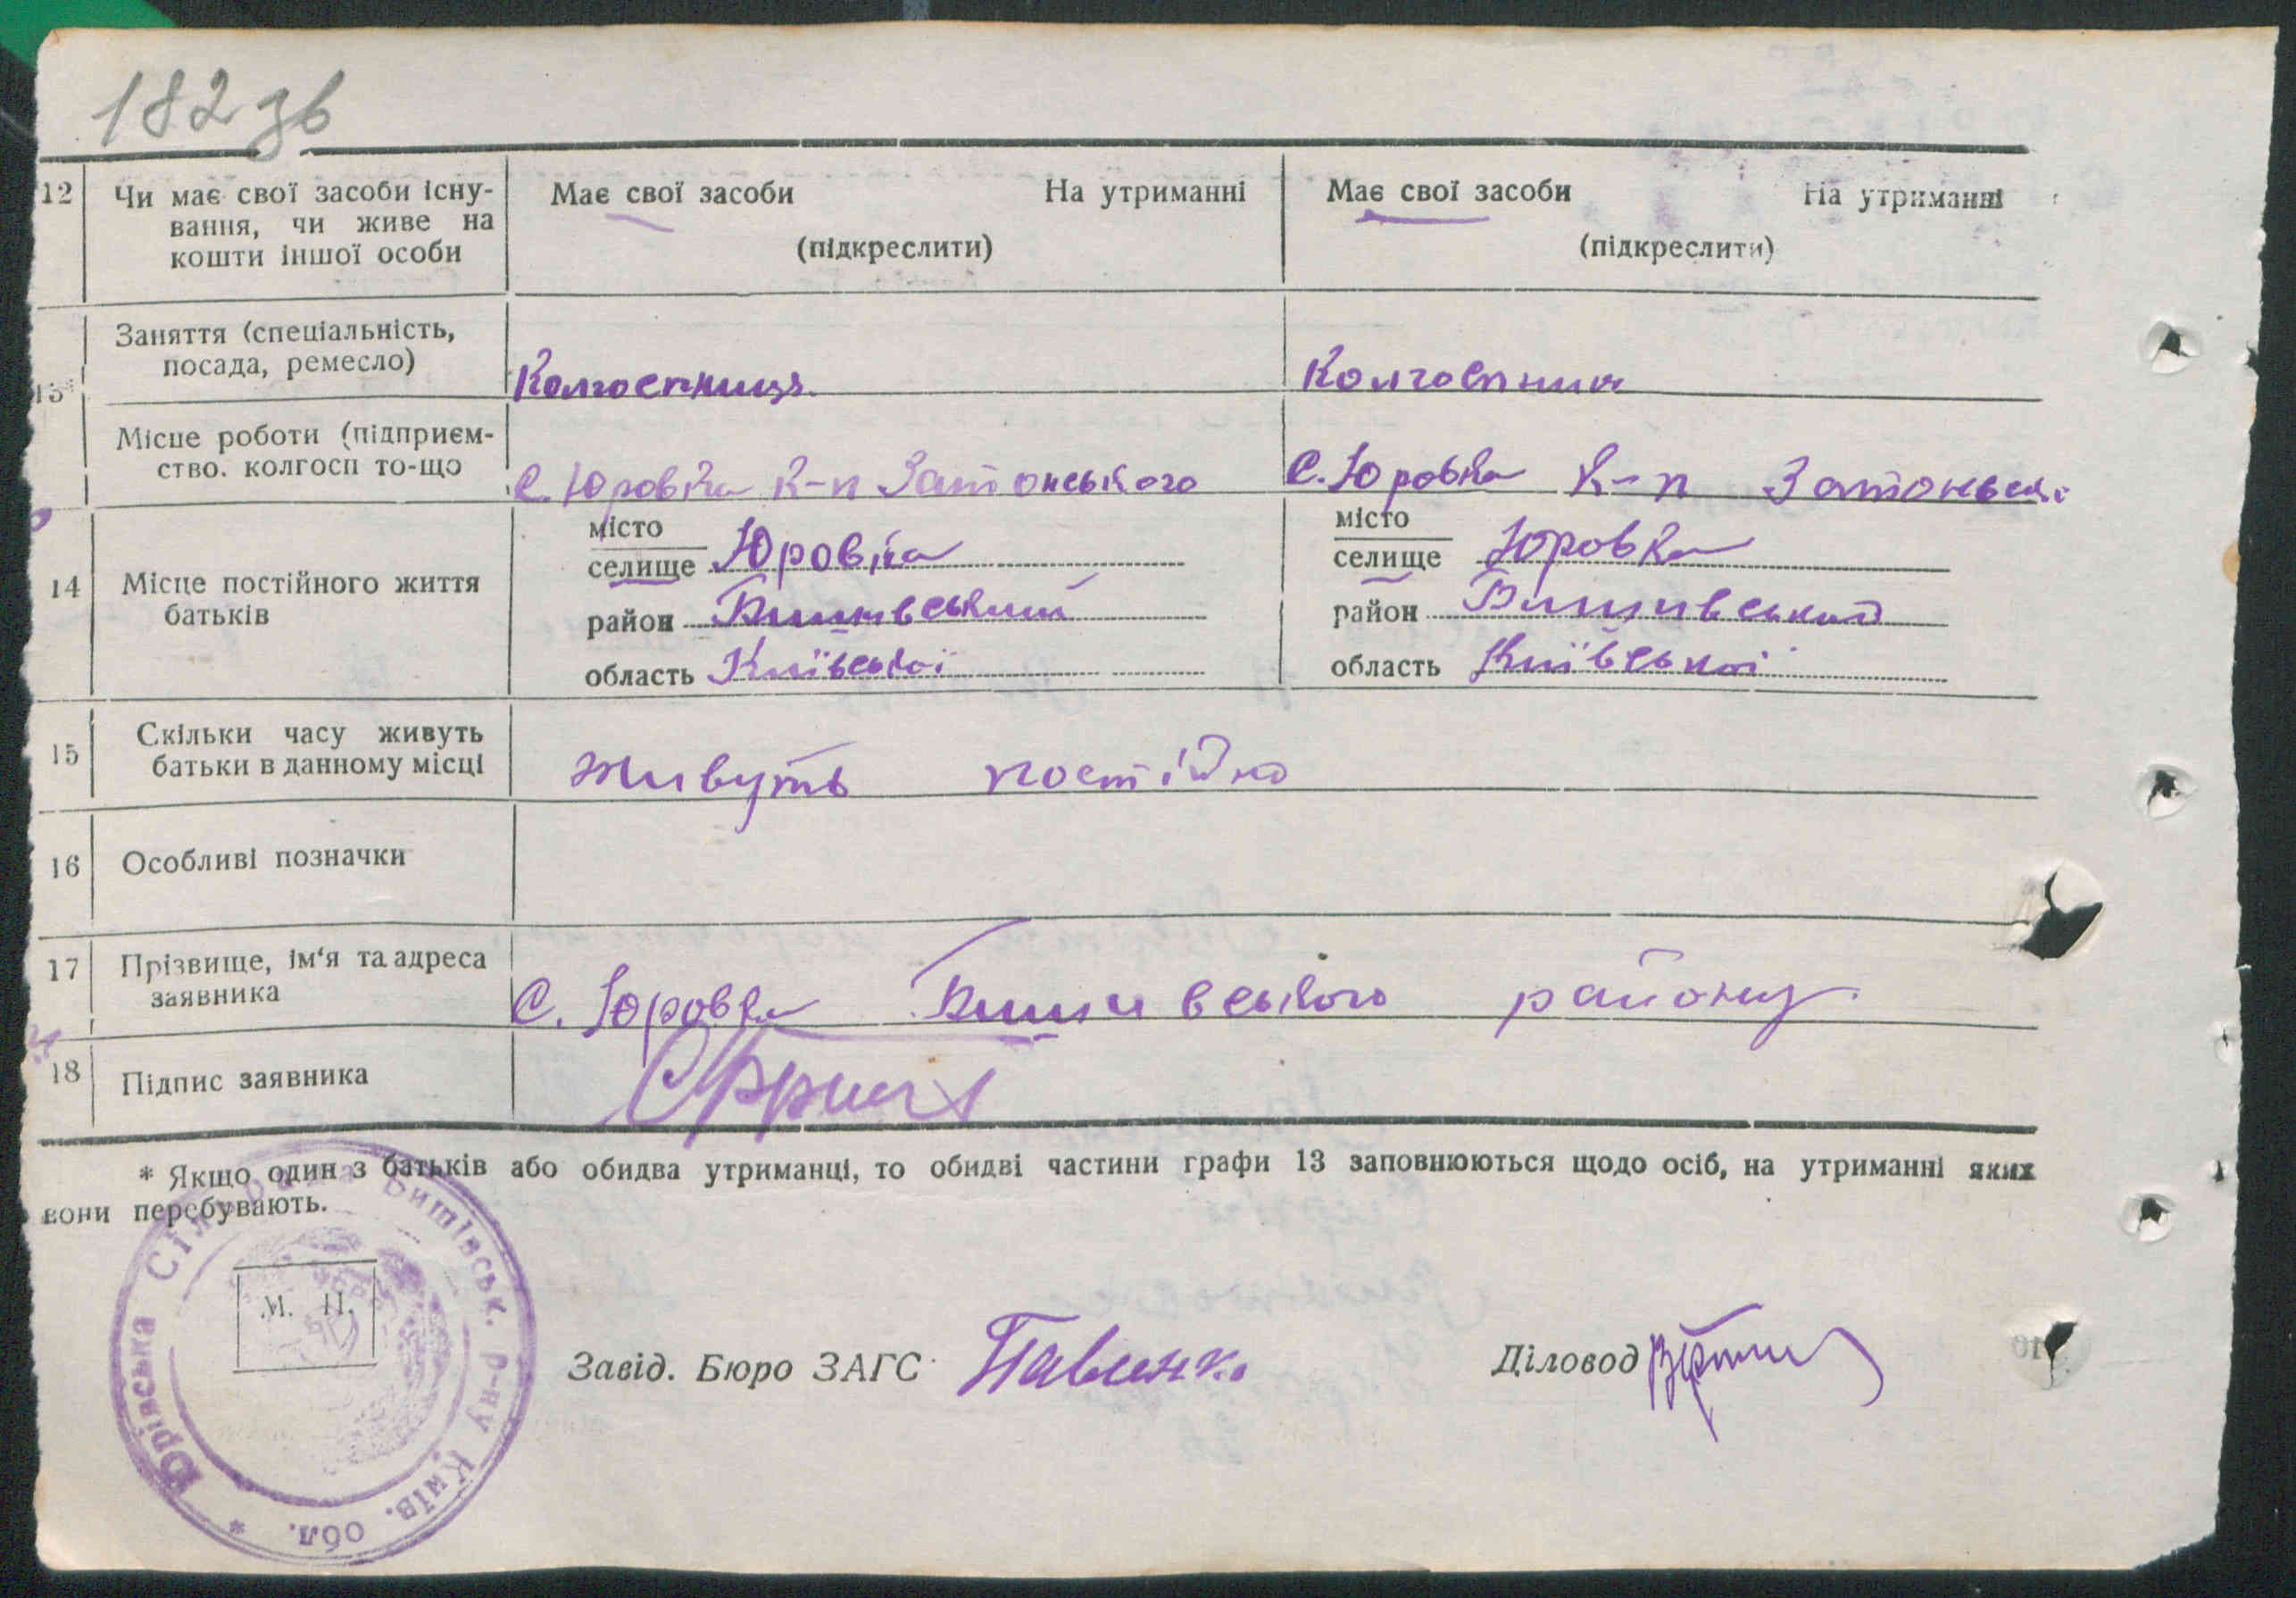 182 зв
12 Чи має свої засоби існу-
вання, чи живе на
кошти іншої особи
Має свої засоби На утриманні
(підкреслити)
Має свої засоби На утриманні
(підкреслити)
13*
Заняття (спеціальність,
посада, ремесло)
Колгоспниця
Колгоспник
Місце роботи (підприєм-
ство. колгосп то-що
С. Юровка к-п Затонського
С. Юровка к-п Затонськ
14 Місце постійного життя
батьків
місто
селище Юровка
район Бишівський
область Київської
місто
селище Юровка
район Бишівський
область Київської
15 Скільки часу живуть
батьки в данному місці
живуть постійно
16 Особливі позначки
17 Прізвище, ім‘я та адреса
заявника
С. Юровка Бишівського району
18 Підпис заявника
* Якщо один з батьків або обидва утриманці, то обидві частини графи 13 заповнюються щодо осіб, на утриманні яких
вони перебувають.
Юрівська Сільрада Бишівськ. р-ну Київ. обл. *
М. П.
Завід. Бюро ЗАГС Павленко
Діловод